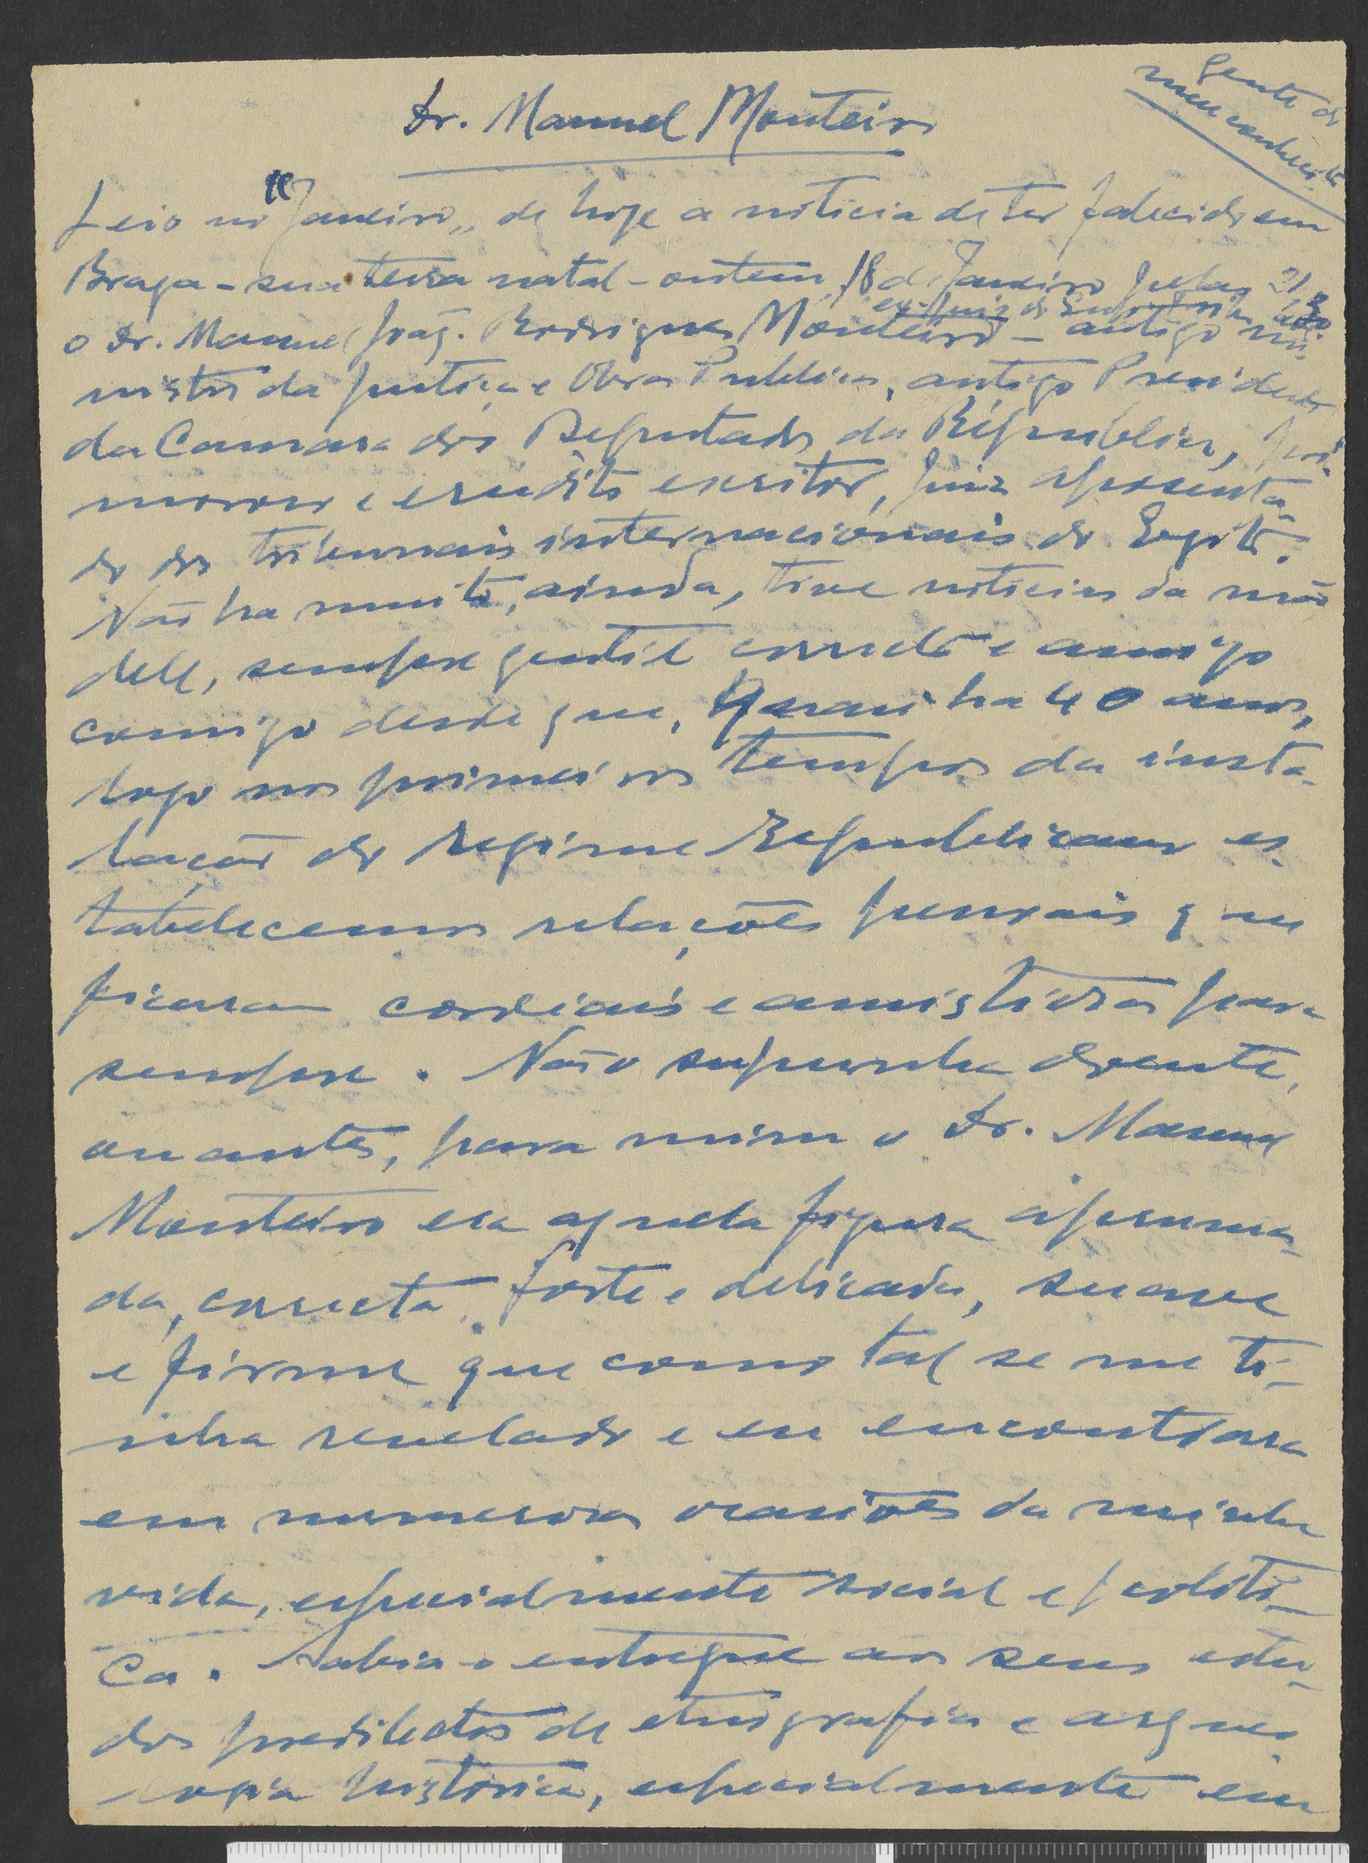 Gente do
meu conhecimto
Dr. Manuel Monteiro
Leio no "Janeiro" de hoje a noticia de ter falecido em
Braga - sua terra natal - ontem, 18 de Janeiro pelas 21
ex-Juiz do
o Dr. Manuel Joaq. Rodrigues Monteiro - antigo mi-
nistro da Justiça e Obras Publicas, antigo Presidente
da Camara dos Deputados da República, pri-
moroso e erudito escritor, juiz aposenta-
do dos tribunais internacionais do Egito.
Não ha muito, ainda, tive noticias da mão
dele, sempre gentil correcto e amigo
comigo desde que, quasi ha 40 anos,
logo nos primeiros tempos da insta-
lação do regime Republicano es-
tabelecemos relações pessoais que
ficaram cordiais e amistosas para
sempre. Não o supunha doente,
ou antes, para mim o Dr. Manuel
Monteiro era aquela figura apruma-
da, correcta, forte e delicada, suave
e firme que como tal se me ti-
nha revelado e eu encontrara
em numerosas ocasiões da minha
vida, especialmente social e politi-
ca. Sabia-o entregue aos seus estu-
dos predilectos de etnografia e arqueo
logia historica, especialmente em